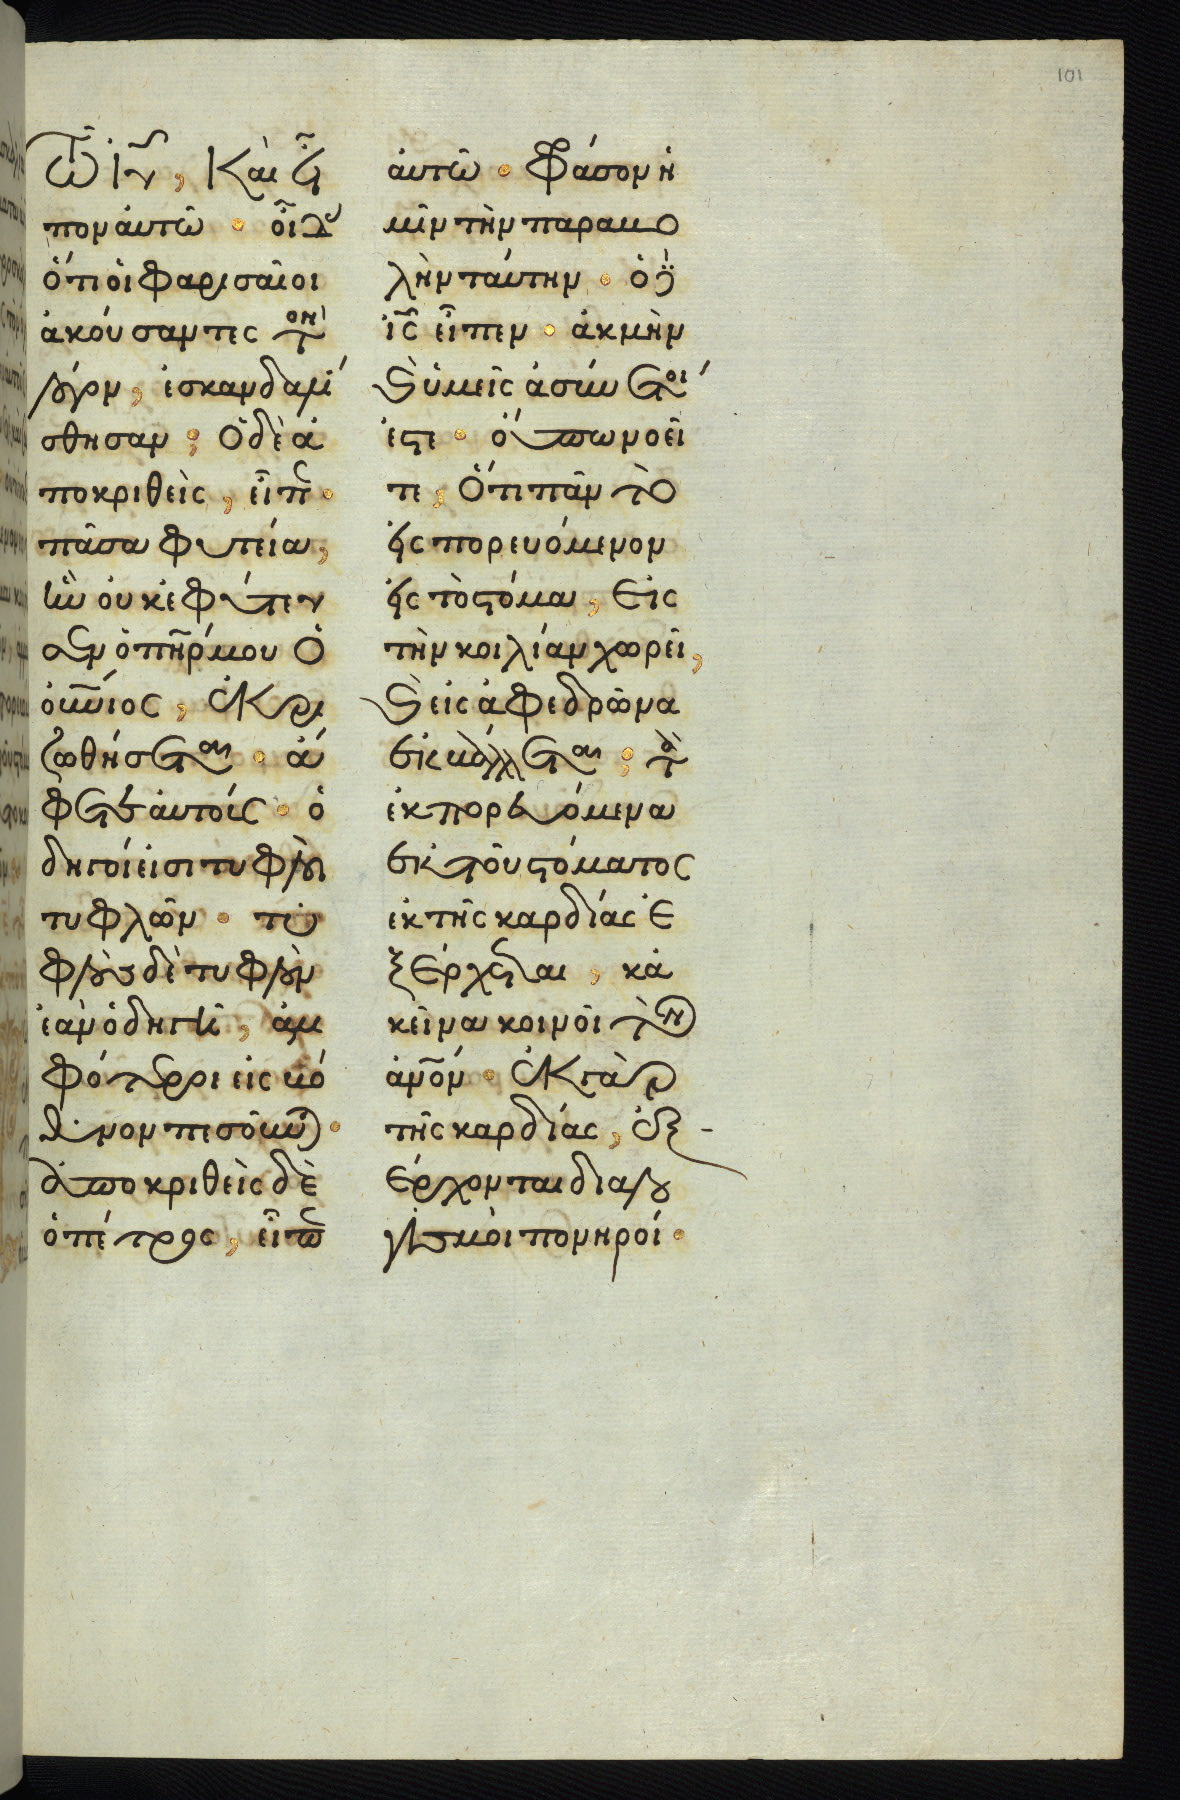 101
τῷ ἰυ, Καὶ εἶ
πον ἀυτῶ · οἶδας
ὅτι ὁι φαρισαῖοι
ἀκούσαντες τὸν
λόγον, ἐσκανδαλί
σθησαν; Ὁ δὲ ἀ
ποκριθεὶς, εἶπεν ·
πᾶσα φυτεία,
ἣν ὀυκ ἐφύτευ
σεν ὁ πηρ μου Ὁ
ὀυνιος, ἐκρι
ζωθήσεται · ἄ
φετε ἀυτούς · ὁ
δηγοί εἰσι τυφλοὶ
τυφλῶν · τυ
φλὸς δὲ τυφλὸν
ἐὰν ὁδηγῆ, ἀμ
φότεροι εἰς βό
θυνον πεσοῦνται ·
ἀποκριθεὶς δὲ
ὁ πέτρος, εἶπεν
ἀυτῶ · Φράσον ἡ
μῖν τὴν παραβο
λὴν ταύτην · ὁ δὲ
ις εἶπεν · ἀκμὴν
καὶ ὑμεῖς ἀσύνετοί
ἐστε · ὄυπω νοεῖ
τε, Ὅτι πᾶν τὸ
εἰσπορευόμενον
εἰς τὸ στόμα, Εἰς
τὴν κοιλίαν χωρεῖ,
καὶ εἰς ἀφεδρῶνα
ἐκβάλλεται; τὰ
ἐκπορευόμενα
ἐκ τοῦ στόματος
ἐκ τῆς καρδίας ἐ
ξέρχεται, κἀ
κεῖνα κοινοῖ τὸν
ἀνον · Ἐκ γὰρ
τῆς καρδίας, ἐξ -
έρχονται διαλο
γισμοὶ πονηροί ·